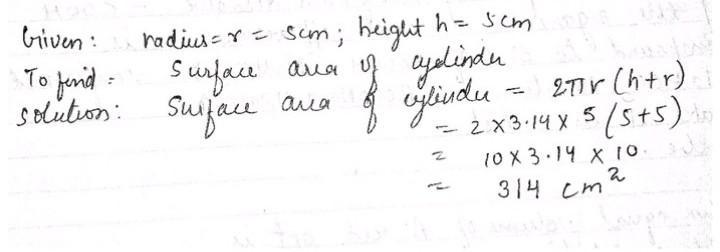 Given: radius = r = 5cm; height h = 5cm
To find = Surface area of cylinder
solution: Surface area of cylinder = 2πr (h+r)
= 2 x 3.14 x 5 (5+5)
= 10 x 3.14 x 10
= 314 cm²